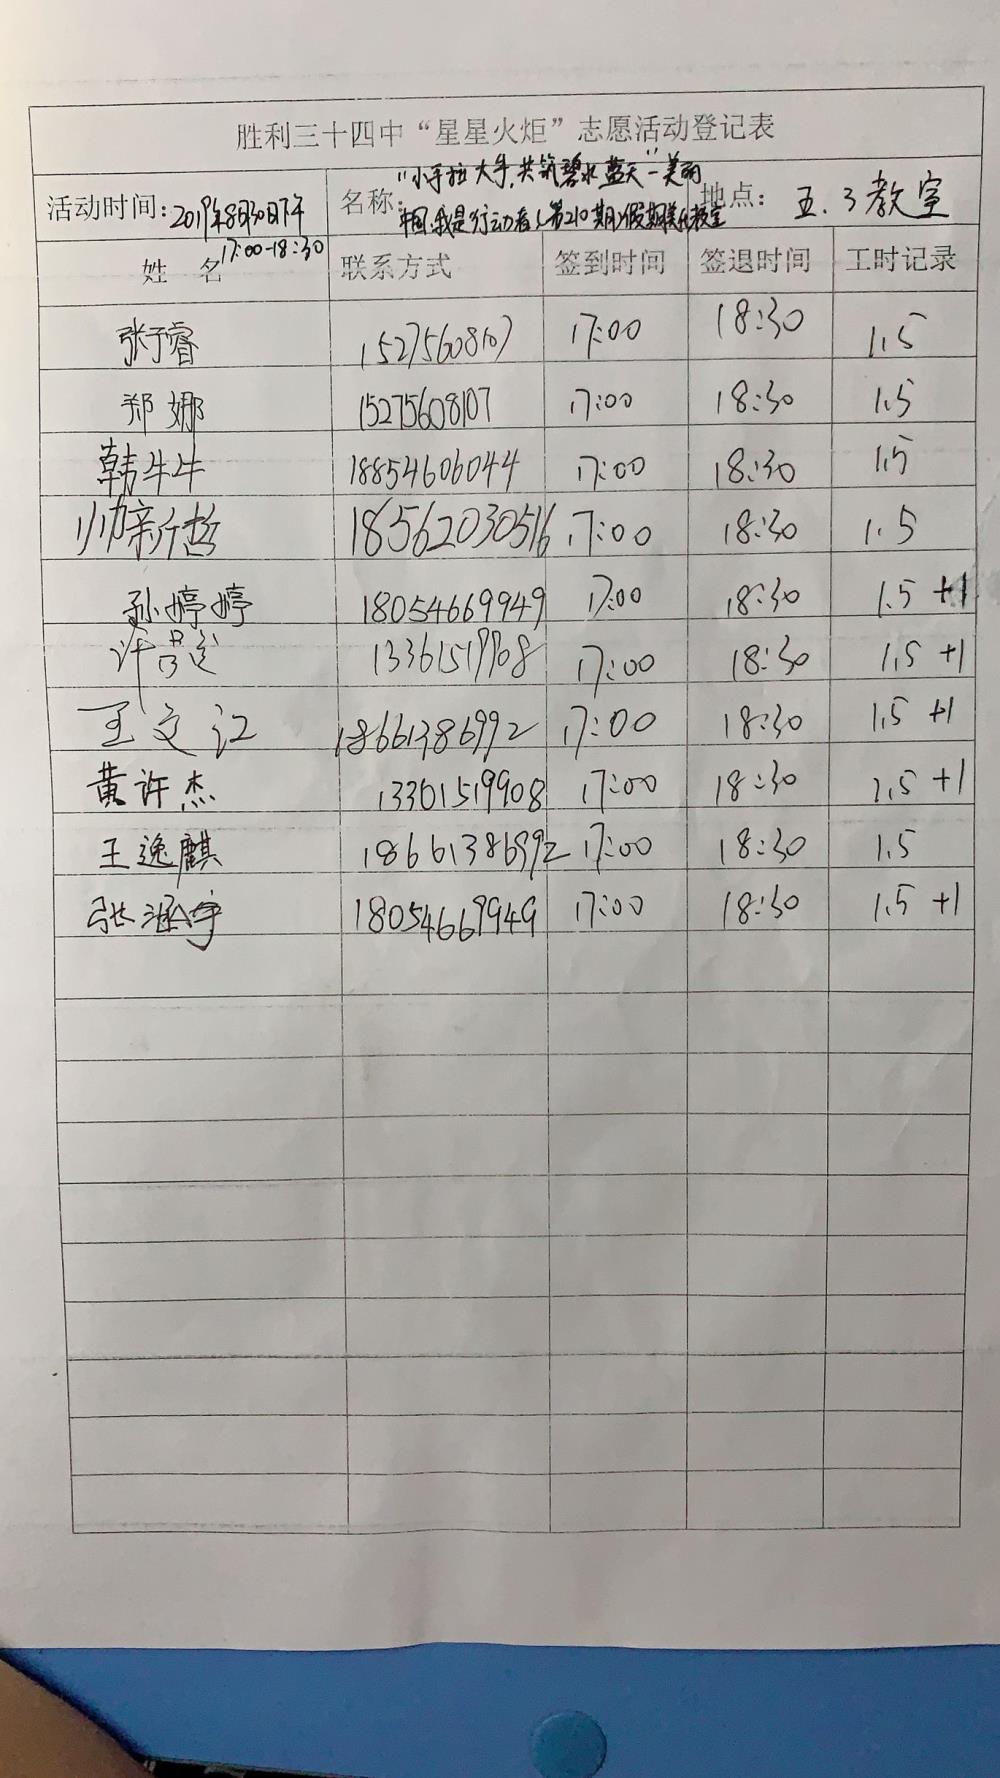 胜利三十四中“星星火炬”志愿活动登记表
活动时间: 2019年8月30日下午 17:00-18:30 名称: “小手拉大手,共筑碧水蓝天”-美丽 地点: 五.3教室
中国,我是行动者(第210期)假期美化教室
姓 名 联系方式 签到时间 签退时间 工时记录
张于睿 15275608107 17:00 18:30 1.5
郑娜 15275608107 17:00 18:30 1.5
韩牛牛 18854606044 17:00 18:30 1.5
帅新哲 18562030516 17:00 18:30 1.5
孙婷婷 18054669949 17:00 18:30 1.5 +1
许 13361519908 17:00 18:30 1.5 +1
王文江 18661386992 17:00 18:30 1.5 +1
黄许杰 13361519908 17:00 18:30 1.5 +1
王逸麒 18661386992 17:00 18:30 1.5
张涵宇 18054669949 17:00 18:30 1.5 +1